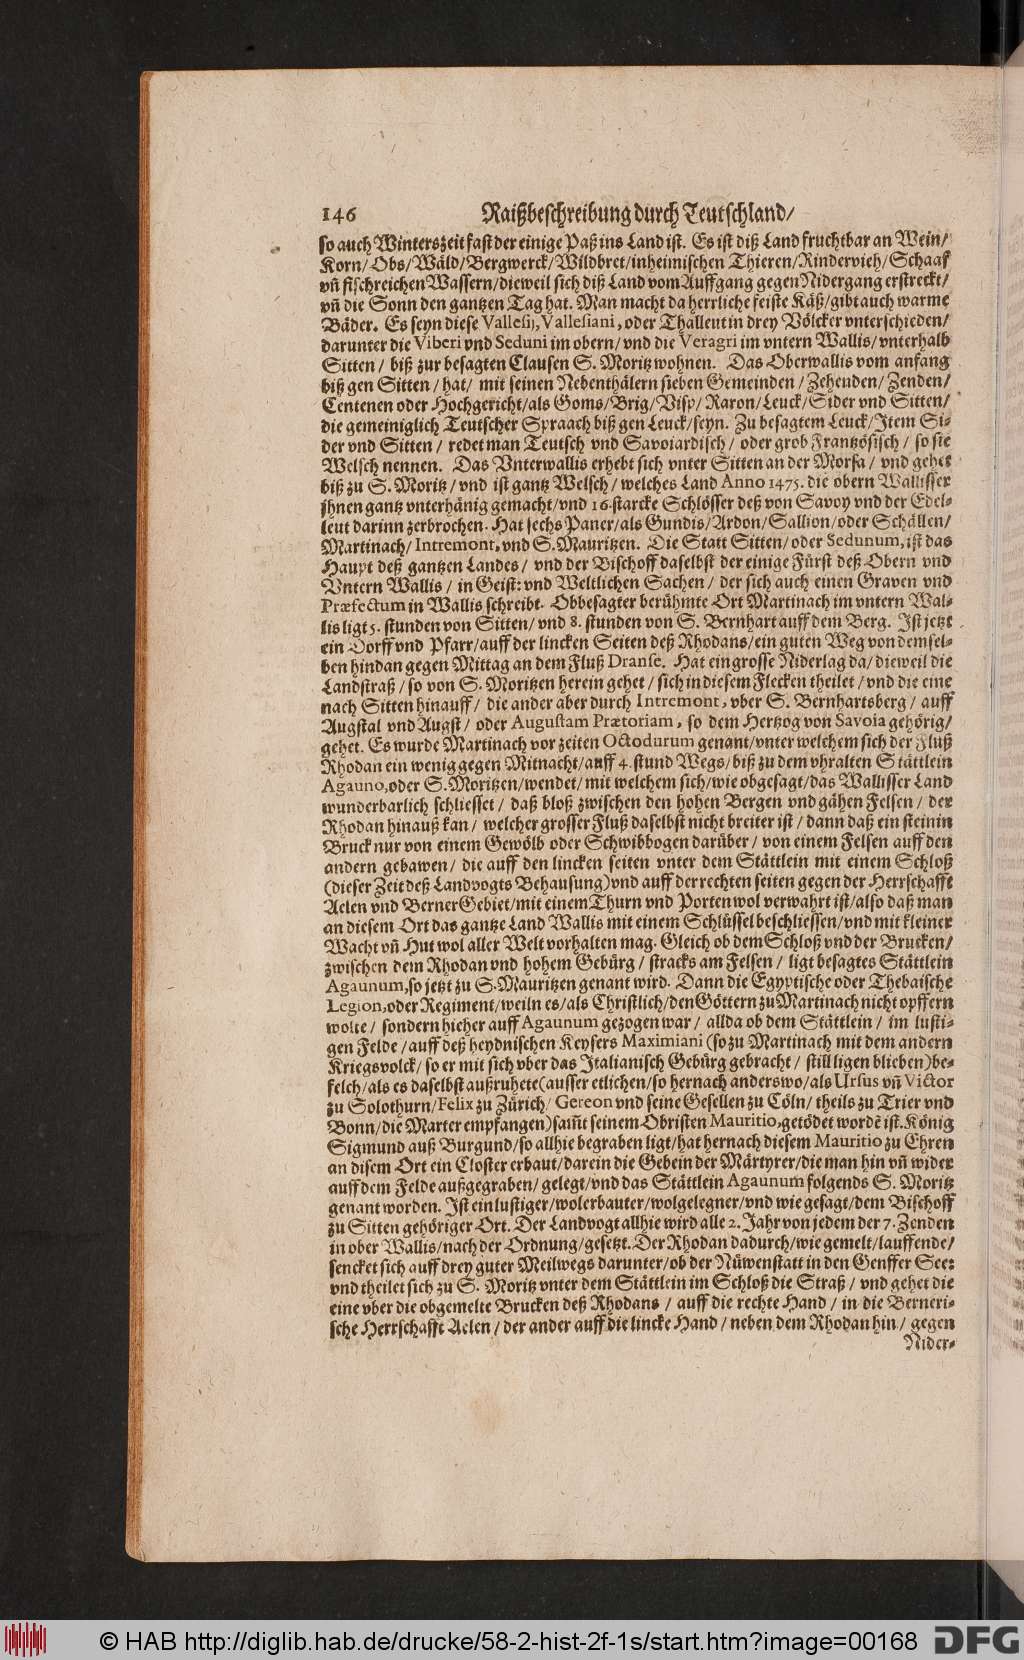 146 Raißbeschreibung durch Teutschland/
so auch Winterszeit fast der einige Paß ins Land ist. Es ist diß Land fruchtbar an Wein/
Korn/ Obs/ Wäld/ Bergwerck/ Wildbret/ inheimischen Thieren/ Rindervieh/ Schaaf
vñ fischreichen Wassern/ dieweil sich diß Land vom Auffgang gegen Nidergang erstreckt/
vñ die Sonn den gantzen Tag hat. Man macht da herrliche feiste Käß/ gibt auch warme
Bäder. Es seyn diese Vallesij, Vallesiani, oder Thalleut in drey Völcker vnterschieden/
darunter die Viberi vnd Seduni im obern/ vnd die Veragri im vntern Wallis/ vnterhalb
Sitten/ biß zur besagten Clausen S. Moritz wohnen. Das Oberwallis vom anfang
biß gen Sitten/ hat/ mit seinen Nebenthälern sieben Gemeinden/ Zehenden/ Zenden/
Centenen oder Hochgericht/ als Goms/ Brig/ Visp/ Raron/ Leuck/ Sider vnd Sitten/
die gemeiniglich Teutscher Spraach biß gen Leuck/ seyn. Zu besagtem Leuck/ Item Si-
der vnd Sitten/ redet man Teutsch vnd Savoiardisch/ oder grob Frantzösisch/ so sie
Welsch nennen. Das Vnterwallis erhebt sich vnter Sitten an der Morsa/ vnd gehet
biß zu S. Moritz/ vnd ist gantz Welsch/ welches Land Anno 1475. die obern Wallisser
jhnen gantz vnterthänig gemacht/ vnd 16. starcke Schlösser deß von Savoy vnd der Edel-
leut darinn zerbrochen. Hat sechs Paner/ als Gundis/ Ardon/ Sallion/ oder Schällen/
Martinach/ Intremont, vnd S. Mauritzen. Die Statt Sitten/ oder Sedunum, ist das
Haupt deß gantzen Landes/ vnd der Bischoff daselbst der einige Fürst deß Obern vnd
Vntern Wallis/ in Geist: vnd Weltlichen Sachen/ der sich auch einen Graven vnd
Præfectum in Wallis schreibt. Obbesagter berühmte Ort Martinach im vntern Wal-
lis ligt 5. stunden von Sitten/ vnd 8. stunden von S. Bernhart auff dem Berg. Ist jetzt
ein Dorff vnd Pfarr/ auff der lincken Seiten deß Rhodans/ ein guten Weg von demsel-
ben hindan gegen Mittag an dem Fluß Dranse. Hat ein grosse Niderlag da/ dieweil die
Landstraß/ so von S. Moritzen herein gehet/ sich in diesem Flecken theilet/ vnd die eine
nach Sitten hinauff/ die ander aber durch Intremont, vber S. Bernhartsberg/ auff
Augstal vnd Augst/ oder Augustam Prætoriam, so dem Hertzog von Savoia gehörig/
gehet. Es wurde Martinach vor zeiten Octodurum genant/ vnter welchem sich der Fluß
Rhodan ein wenig gegen Mitnacht/ auff 4. stund Wegs/ biß zu dem vhralten Stättlein
Agauno, oder S. Moritzen/ wendet/ mit welchem sich/ wie obgesagt/ das Wallisser Land
wunderbarlich schliesset/ daß bloß zwischen den hohen Bergen vnd gähen Felsen/ der
Rhodan hinauß kan/ welcher grosser Fluß daselbst nicht breiter ist/ dann daß ein steinin
Bruck nur von einem Gewölb oder Schwibbogen darüber/ von einem Felsen auff den
andern gebawen/ die auff den lincken seiten vnter dem Stättlein mit einem Schloß
(dieser Zeit deß Landvogts Behausung) vnd auff der rechten seiten gegen der Herrschafft
Aelen vnd Berner Gebiet/ mit einem Thurn vnd Porten wol verwahrt ist/ also daß man
an diesem Ort das gantze Land Wallis mit einem Schlüssel beschliessen/ vnd mit kleiner
Wacht vñ Hut wol aller Welt vorhalten mag. Gleich ob dem Schloß vnd der Brucken/
zwischen dem Rhodan vnd hohem Gebürg/ stracks am Felsen/ ligt besagtes Stättlein
Agaunum, so jetzt zu S. Mauritzen genant wird. Dann die Egyptische oder Thebaische
Legion, oder Regiment/ weiln es/ als Christlich/ den Göttern zu Martinach nicht opffern
wolte/ sondern hieher auff Agaunum gezogen war/ allda ob dem Stättlein/ im lusti-
gen Felde/ auff deß heydnischen Keysers Maximiani (so zu Martinach mit dem andern
Kriegsvolck/ so er mit sich vber das Italianisch Gebürg gebracht/ still ligen blieben) be-
felch/ als es daselbst außruhete (ausser etlichen/ so hernach anderswo/ als Ursus vñ Victor
zu Solothurn/ Felix zu Zürich/ Gereon vnd seine Gesellen zu Cöln/ theils zu Trier vnd
Bonn/ die Marter empfangen) sam̃t seinem Obristen Mauritio, getödet wordẽ ist. König
Sigmund auß Burgund/ so allhie begraben ligt/ hat hernach diesem Mauritio zu Ehren
an disem Ort ein Closter erbaut/ darein die Gebein der Märtyrer/ die man hin vñ wider
auff dem Felde außgegraben/ gelegt/ vnd das Stättlein Agaunum folgends S. Moritz
genant worden. Ist ein lustiger/ wolerbauter/ wolgelegner/ vnd wie gesagt/ dem Bischoff
zu Sitten gehöriger Ort. Der Landvogt allhie wird alle 2. Jahr von jedem der 7. Zenden
in ober Wallis/ nach der Ordnung/ gesetzt. Der Rhodan dadurch/ wie gemelt/ lauffende/
sencket sich auff drey guter Meilwegs darunter/ ob der Nüwenstatt in den Genffer See:
vnd theilet sich zu S. Moritz vnter dem Stättlein im Schloß die Straß/ vnd gehet die
eine vber die obgemelte Brucken deß Rhodans/ auff die rechte Hand/ in die Berneri-
sche Herrschafft Aelen/ der ander auff die lincke Hand/ neben dem Rhodan hin/ gegen
Nider-
© HAB http://diglib.hab.de/drucke/58-2-hist-2f-1s/start.htm?image=00168 DFG